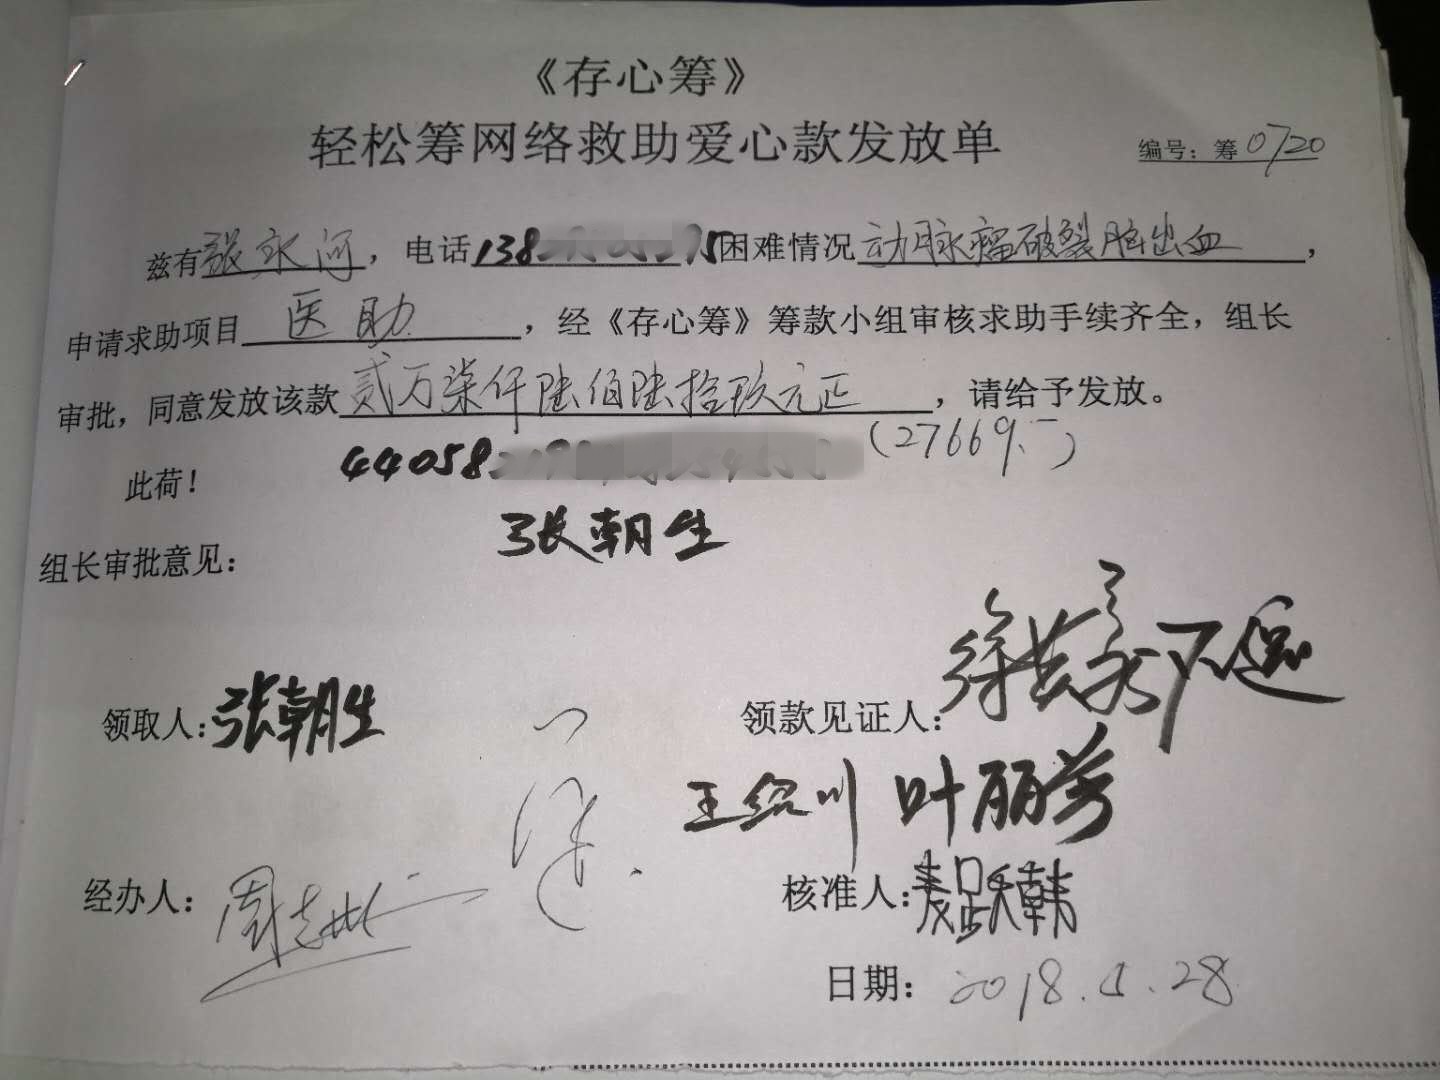 《存心筹》
轻松筹网络救助爱心款发放单
编号：筹0720
兹有张永河，电话138 95困难情况动脉瘤破裂脑出血，
申请求助项目医助，经《存心筹》筹款小组审核求助手续齐全，组长
审批，同意发放该款贰万柒仟陆佰陆拾玖元正，请给予发放。
44058 (27669.-)
此荷！
张朝生
组长审批意见：
领取人：张朝生 领款见证人：
王绍川 叶丽芳
经办人： 核准人：
日期：2018.4.28